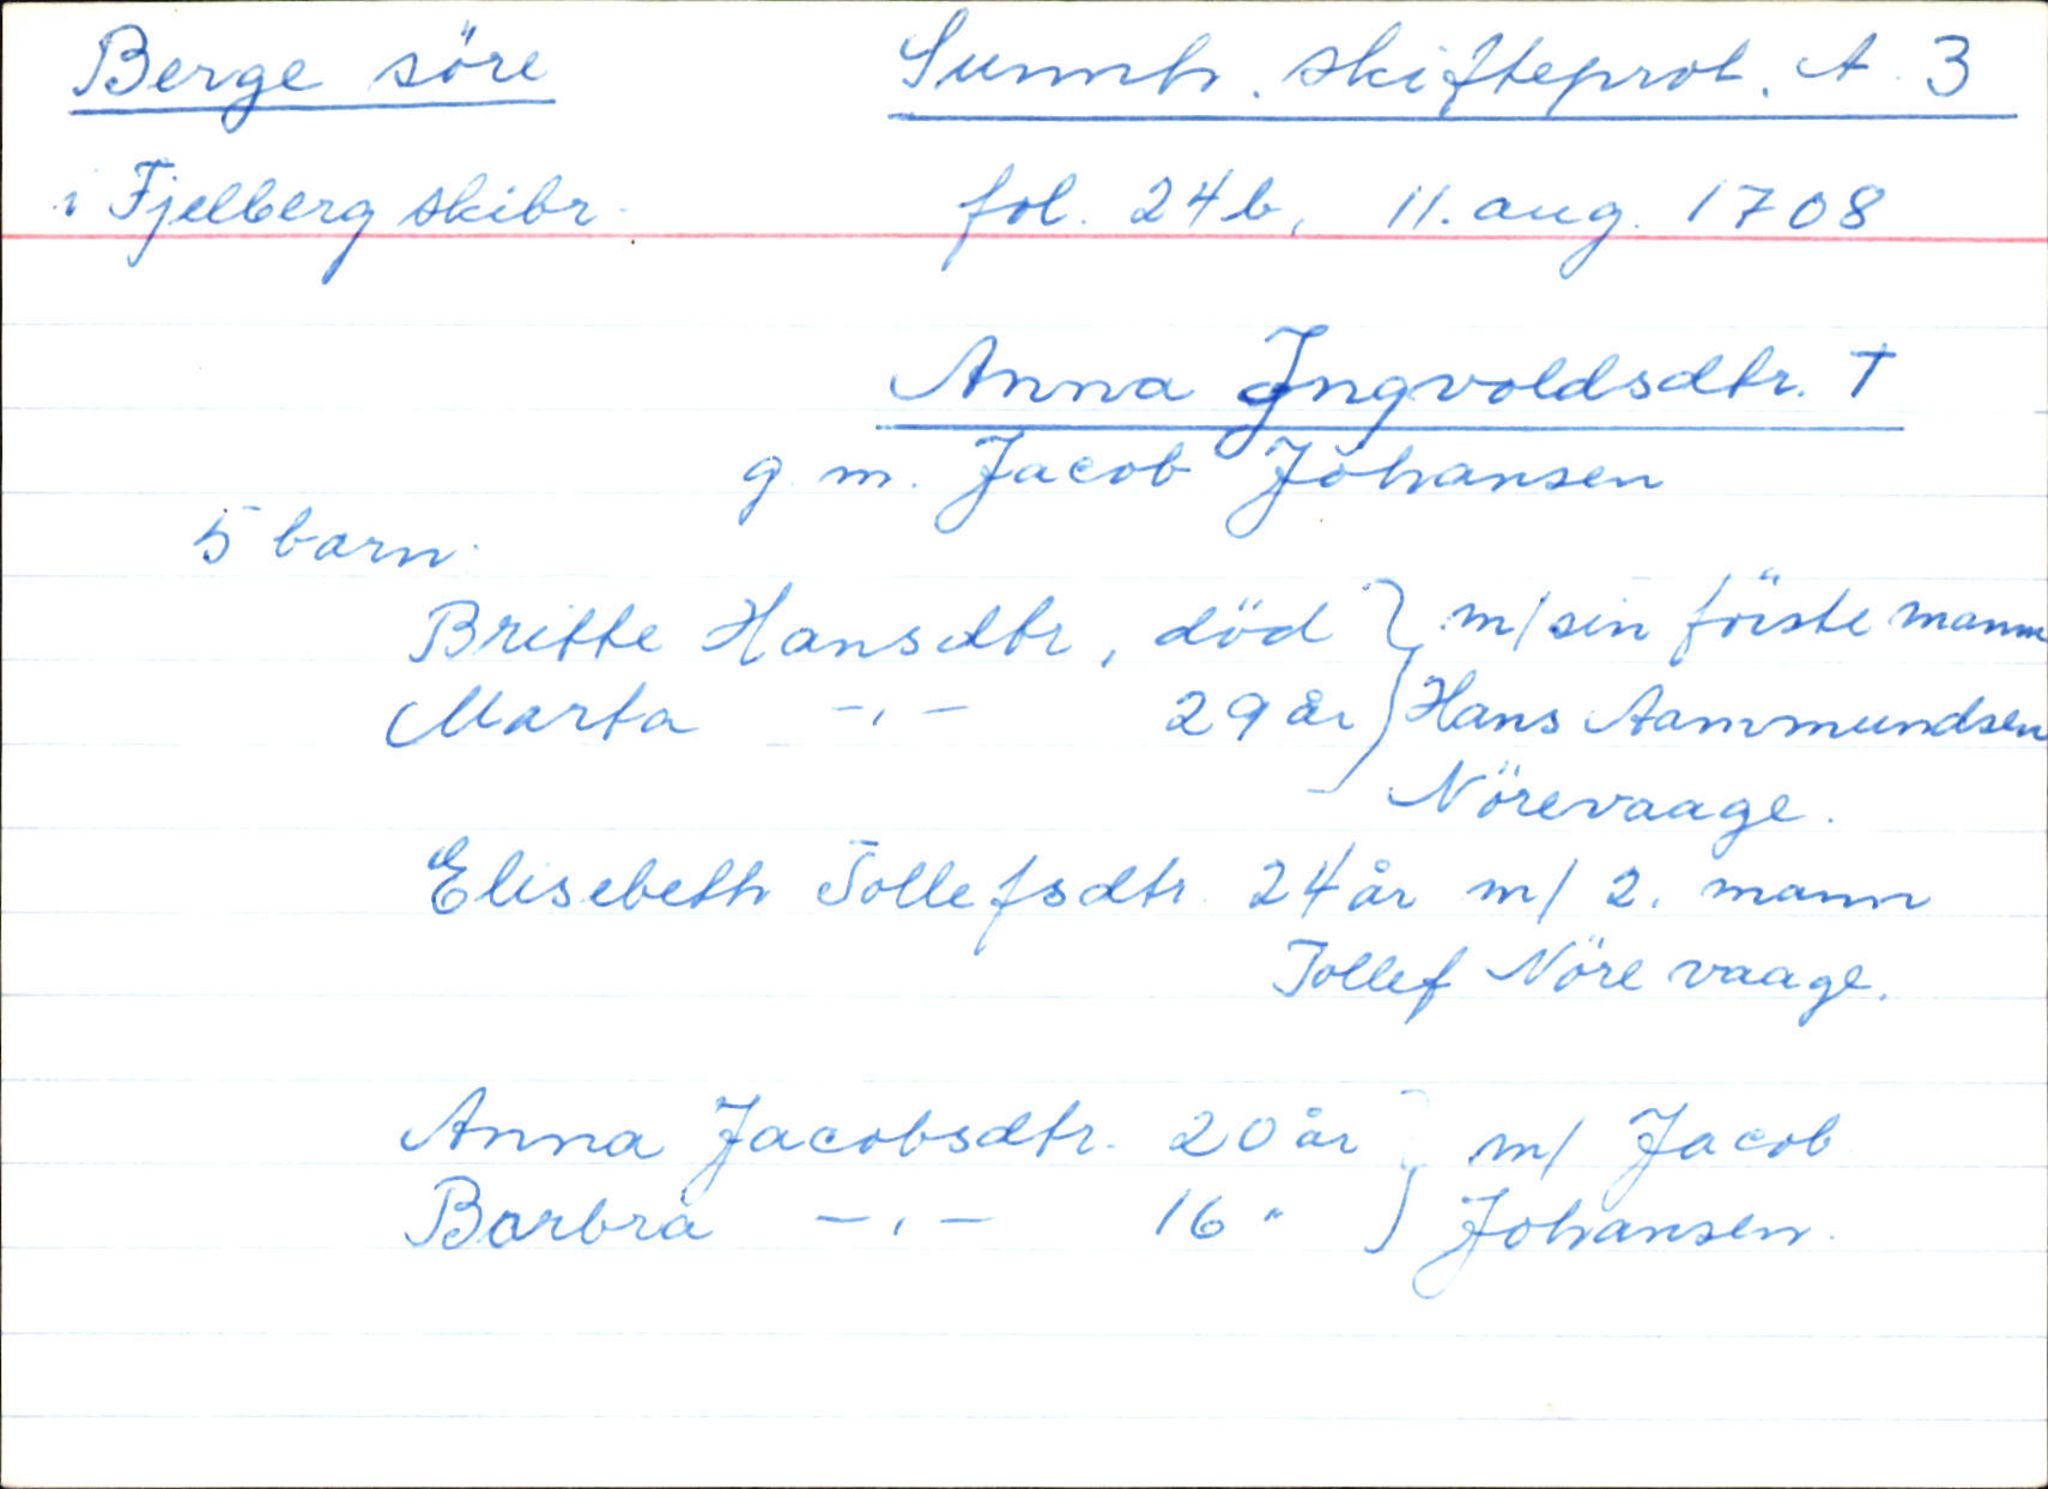 Berge söre Sunnh. skifteprot. A. 3
i Fjelberg skibr. fol. 24b, 11. aug. 1708
Anna Ingvoldsdtr. †
g. m. Jacob Johansen
5 barn.
Britte Hansdtr, död } m/ sin förste mann
Marta -"- 29 år } Hans Aammundsen
Nörevaage.
Elisebeth Tollefsdtr. 24 år m/ 2. mann
Tollef Nörevaage.
Anna Jacobsdtr. 20 år } m/ Jacob
Barbra -"- 16 " } Johansen.